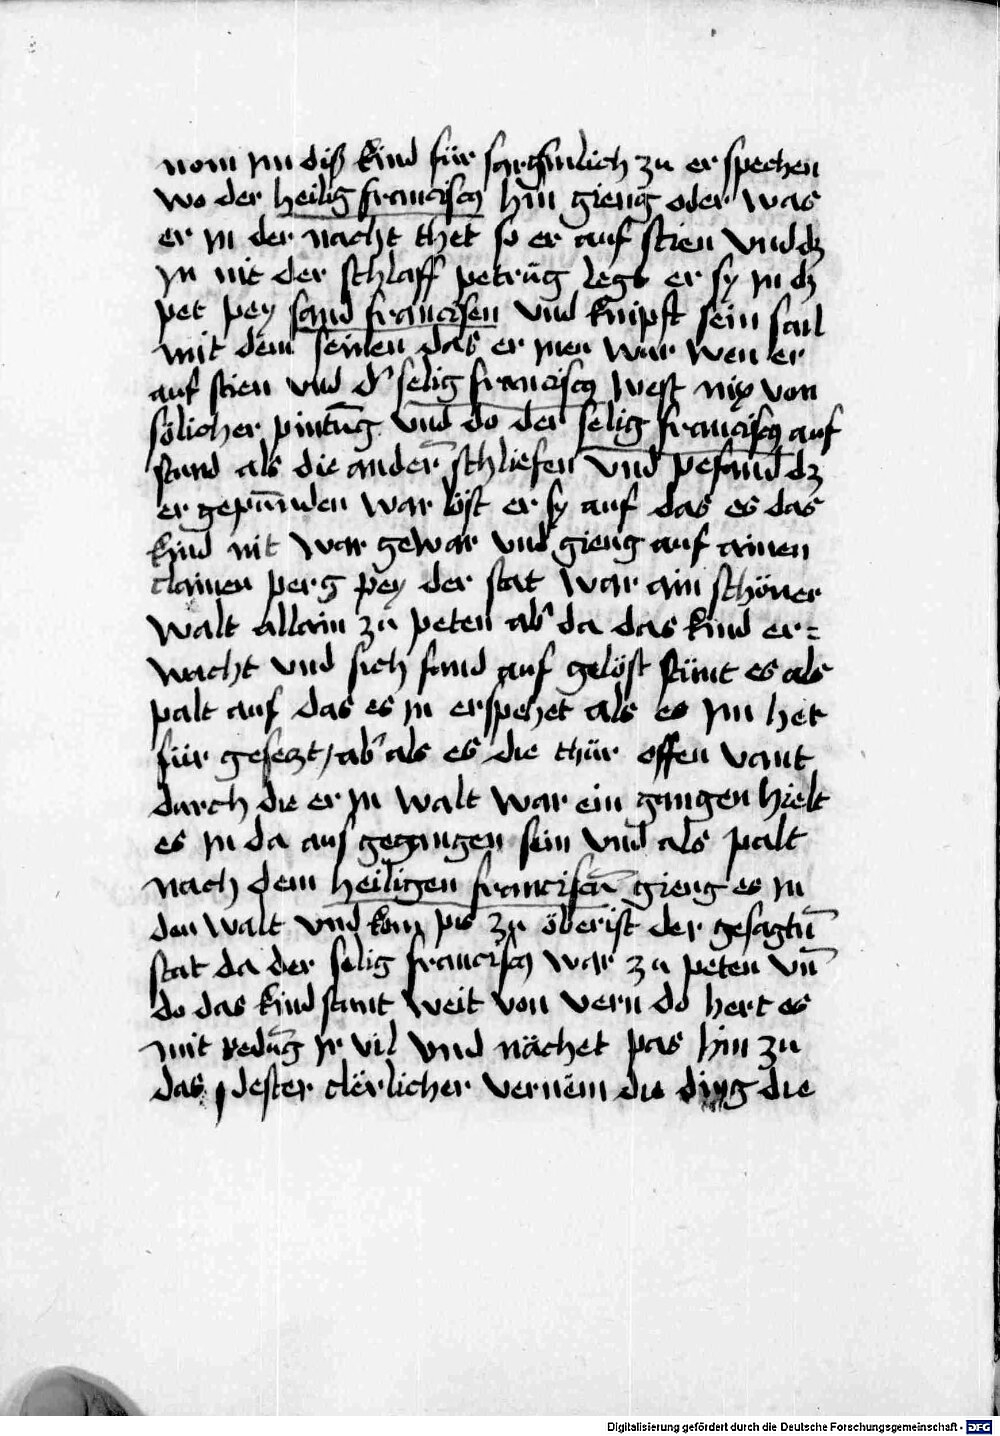 nom jm diß kind für sargsmlich zu er spechen
wo der heilig franciscꝯ hin gieng oder was
er jn der nacht thet so er auf stien vnd dʒ
jn nit der schlaff petrüg legt er sy jn dʒ
pet pey sand francisen vnd knipft sein sail
mit dem seinen das er jnen wär wen er
auf stien vnd d' selig franciscꝯ west nix von
sölicher pintūg vnd do der selig franciscꝯ auf
stand als die ander̄ schliefen vnd pefand dʒ
er gepūnden war löst er sy auf das es das
kind nit war gewar vnd gieng auf ainen
clainen perg pey der stat war ain schöner
walt allain zu peten ab' da das kind er=
wacht vnd sich fand auf gelöst stünt es als
palt auf das es jn erspehet als es jm het
für gesetzt / ab' als es die thür offen vant
durch die er jn walt war ein gangen hielt
es jn da aus gegangen sein vnd als palt
nach dem heiligen franciscū gieng es jn
den walt vnd kom pis zu öberist der gesagtn̄
stat da der selig franciscꝯ war zu peten vn̄
do das kind stamt weit von vern do hert es
mit redūg jr vil vnd nächet pas hin zu
das j dester clërlicher vernëm die ding die
Digitalisierung gefördert durch die Deutsche Forschungsgemeinschaft - DFG